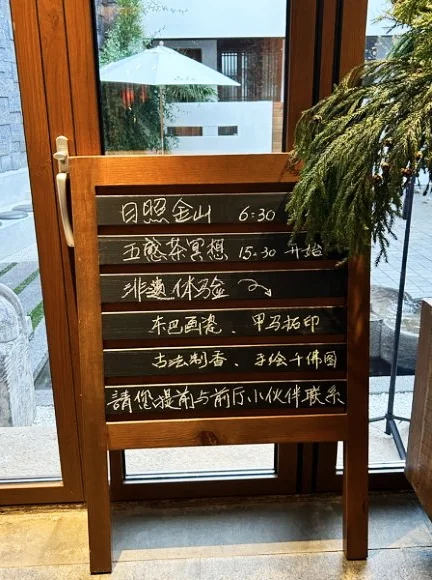 日照金山 6:30
五感茶冥想 15:30 开始
非遗体验
东巴画瓷、甲马拓印
古法制香、手绘千佛图
請您提前与前厅小伙伴联系